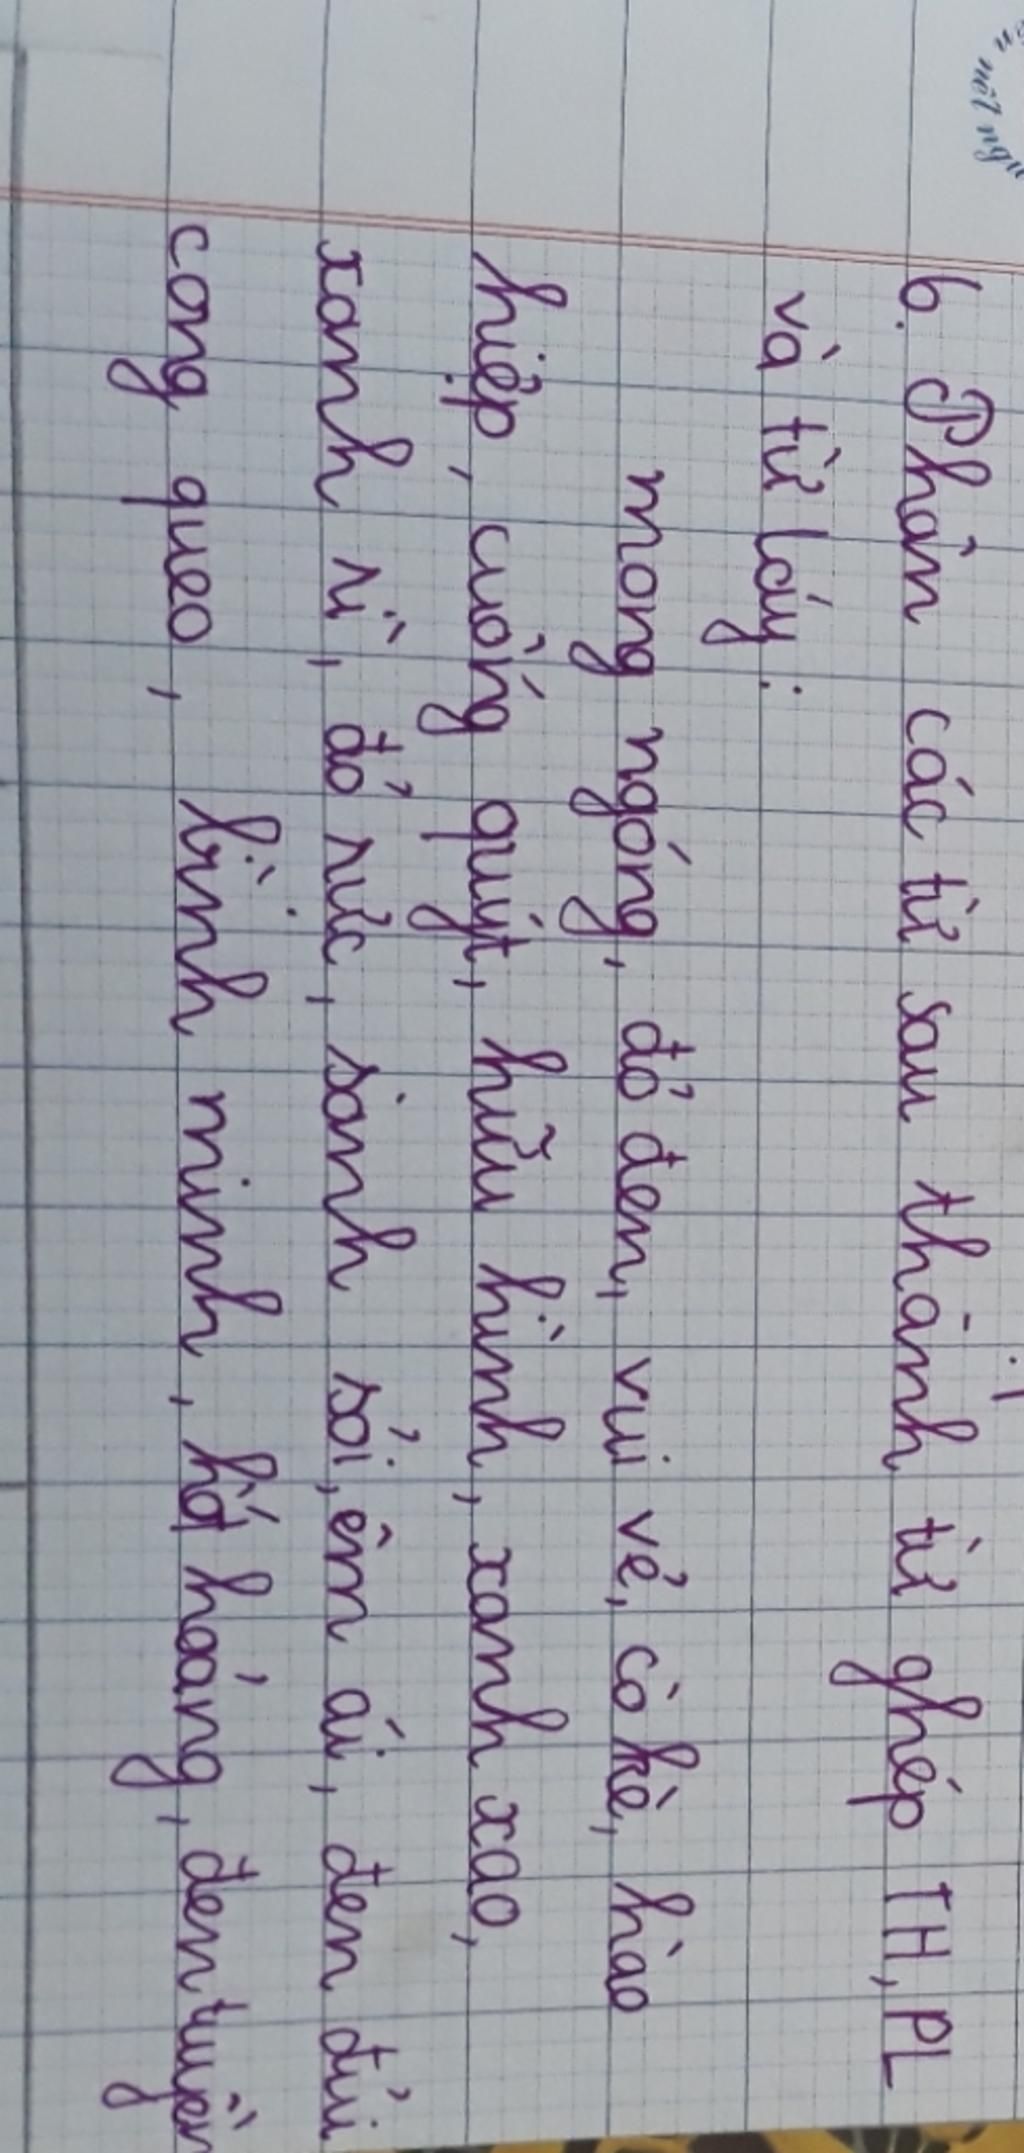 6. Phân các từ sau thành từ ghép TH, PL
và từ láy:
mong ngóng, đỏ đen, vui vẻ, cò kè, hào
hiệp, cuống quýt, hữu hình, xanh xao,
xanh rì, đỏ rực, sành sỏi, êm ái, đen đủi
cong queo, linh minh, hớt hoảng, đen tuyền